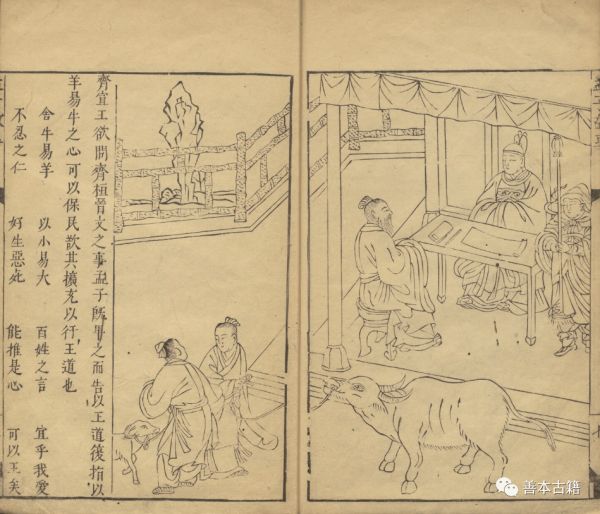 齊宣王欲問齊桓晉文之事孟子旣卑之而告以王道復指以
羊易牛之心可以保民欲其擴充以行王道也
舍牛易羊 以小易大 百姓之言 宜乎我愛
不忍之仁 好生惡死 能推是心 可以王矣
善本古籍